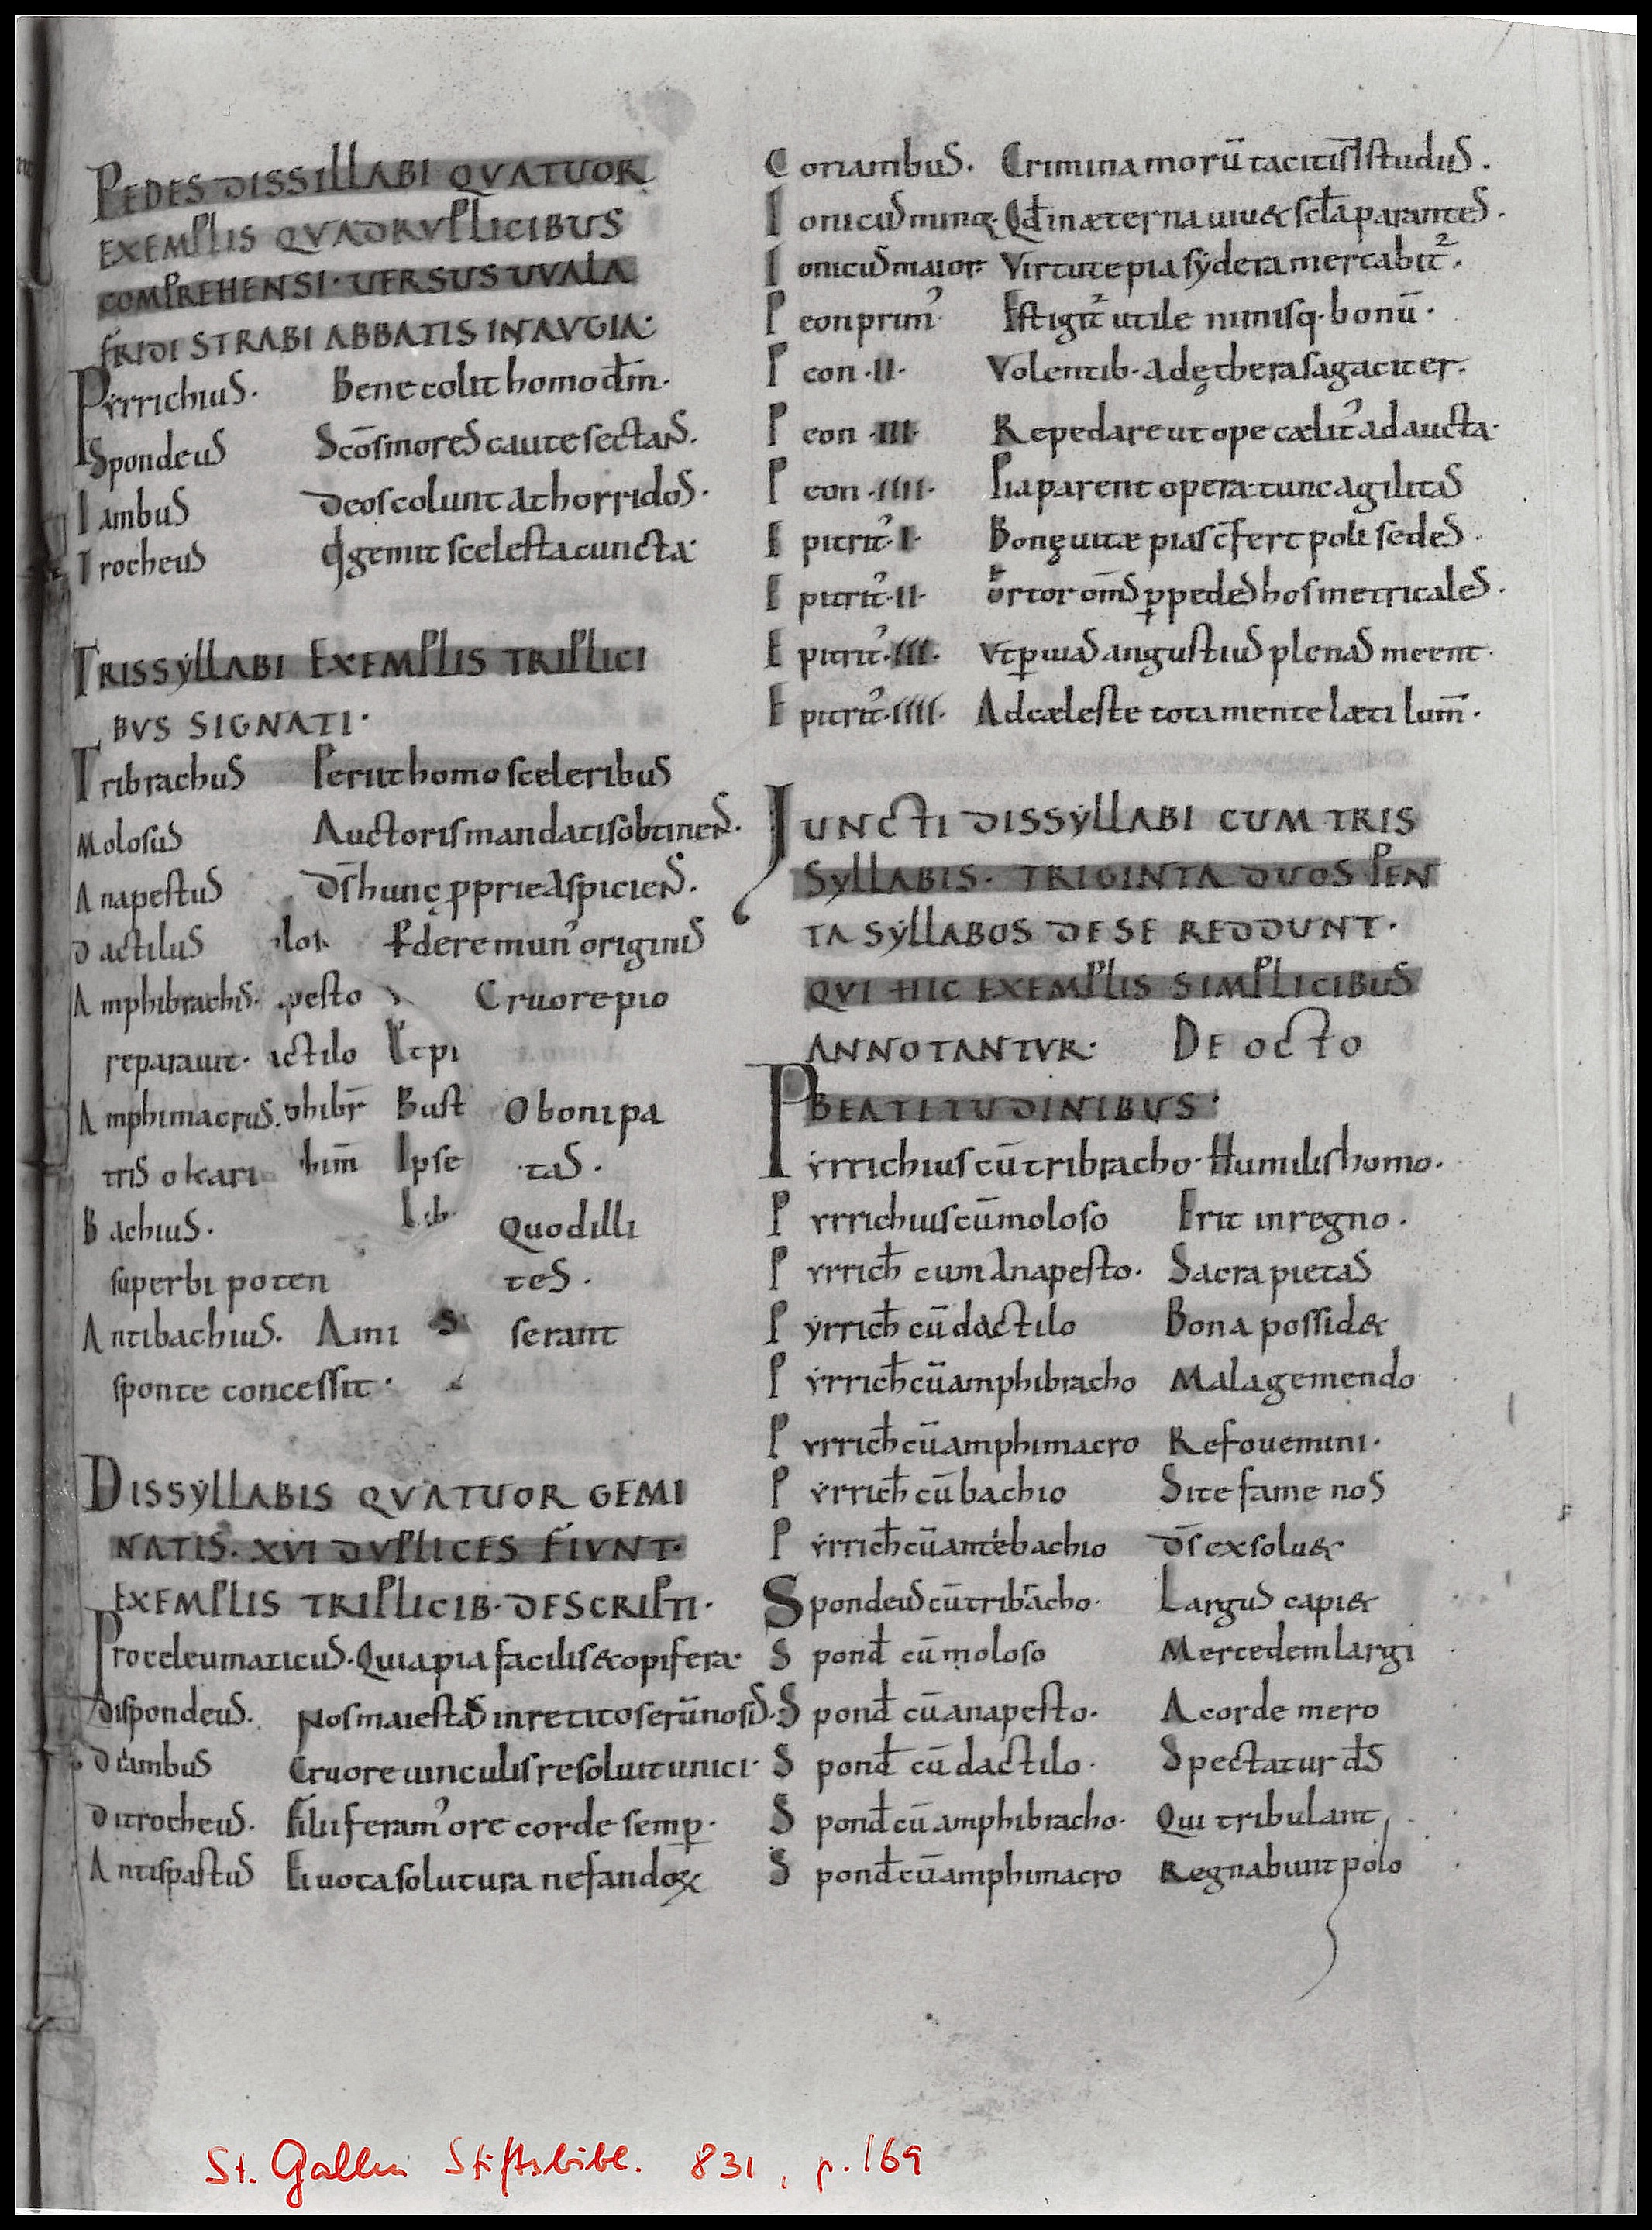 PEDES DISSILLABI QVATUOR
EXEMPLIS QVADRVPLICIBUS
COMPREHENSI· UERSUS UVALA
FRIDI STRABI ABBATIS IN AVGIA·
Pẏrrichius. Bene colit homo dm̄.
Spondeus Scōs mores caute sectans.
Iambus Deos colunt at horridos.
Trocheus Qđ gemit scelesta cuncta·
TRISSẎLLABI EXEMPLIS TRIPLICI
BVS SIGNATI·
Tribrachus Periit homo sceleribus
Molosus Auctoris mandatis obtinens.
Anapestus Ds̄ hunc ꝓprie aspiciens.
Dactilus ilos P̄dere mun᾽ originis
Amphibrachis. pesto Cruore pio
reparauit· actilo Et pi
Amphimacrus. phibr̄ Bust O boni pa
tris o kari him̄ Ipse tas.
Bachius. Quod illi
superbi poten tes.
Antibachius. Ami serant
sponte concessit·
DISSẎLLABIS QVATUOR GEMI
NATIS. XVI DVPLICES FIUNT·
EXEMPLIS TRIPLICIB· DESCRIPTI·
Proceleumaticus. Quia pia facilis & opifera·
Dispondeus. Nos maiestas in retito serū nosis.
Diiambus Cruore uinculis resoluit unici·
Ditrocheus. Filii feram᾽ ore corde semꝑ·
Antispastus Ei uota solutura nefandoꝝ
Coriambus. Crimina morū tacitis studiis.
Ionicus minor. Qđ in æterna uiu& scl̄a parantes.
Ionicus maior Virtute pia sẏdera mercabit².
Peon prim᾽ Est igit² utile nimisq· bonū·
Peon ·II· Volentib· ad ęthera sagaciter.
Peon ·III· Repedare ut ope cælit᾽ adaucta·
Peon ·IIII· Pia parent opera tunc agilitas
Epitrit᾽· I· Bonę uitæ pias c̄fert poli sedes.
Epitrit᾽· II· Hortor om̄s ꝑ pedes hos metricales.
Epitrit᾽· III· Vt ꝑ uias angustius plenas meent·
Epitrit᾽· IIII· Ad cæleste tota mente læti lum̄·
JUNCTI DISSẎLLABI CUM TRIS
SYLLABIS· TRIGINTA DUOS PEN
TA SẎLLABOS DE SE REDDUNT·
QVI HIC EXEMPLIS SIMPLICIBUS
ANNOTANTVR· DE OCTO
BEATITUDINIBUS·
Pẏrrichius cū tribracho· Humilis homo.
Pyrrichius cū moloso Erit in regno.
Pyrrich̄ cum anapesto· Sacra pietas
Pẏrrich̄ cū dactilo Bona possid&
Pẏrrich̄ cū amphibracho Mala gemendo
Pyrrich̄ cū amphimacro Refouemini·
Pẏrrich̄ cū bachio Site fame nos
Pẏrrich̄ cū antebachio Ds̄ exsolu&
Spondeus cū tribracho· Largus capi&
Spond̄ cū moloso Mercedem largi
Spond̄ cū anapesto· A corde mero
Spond̄ cū dactilo· Spectatur ds̄
Spond̄ cū amphibracho· Qui tribulant
Spond̄ cū amphimacro Regnabunt polo
St. Gallen Stiftsbibl. 831, p. 169